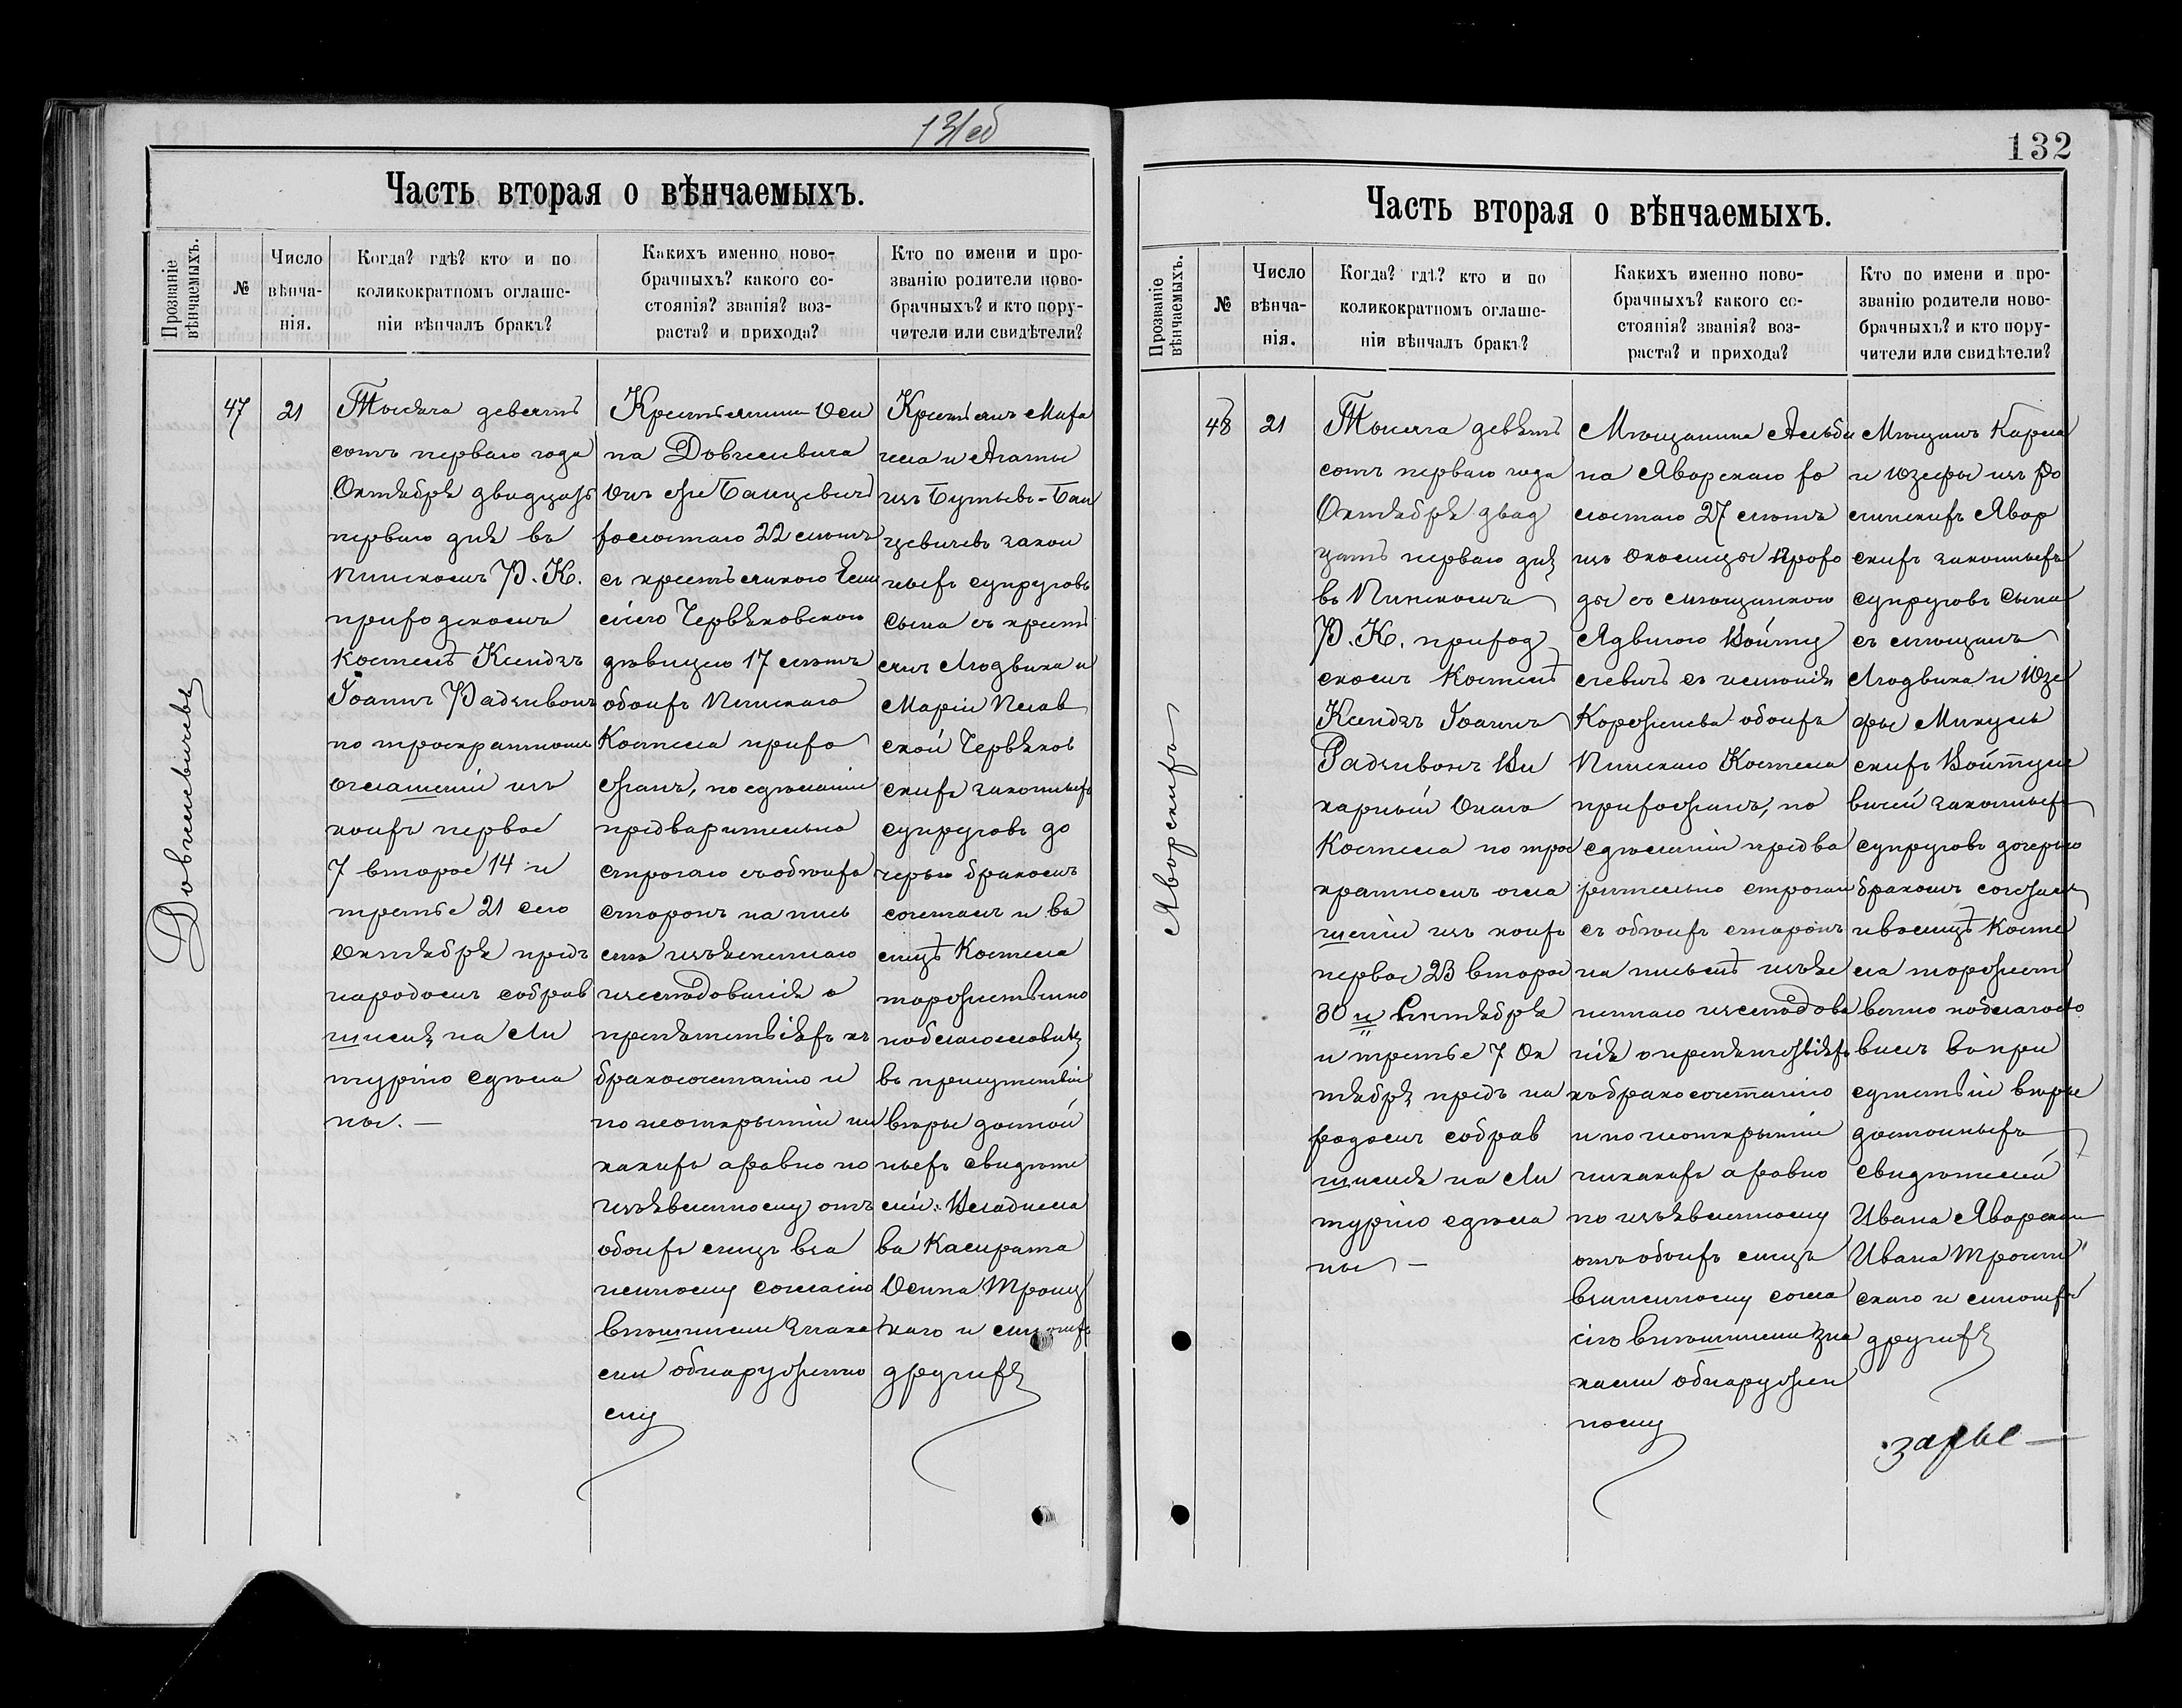 131об
Часть вторая о вѣнчаемыхъ.
Прозваніе вѣнчаемыхъ.
№
Число вѣнча-
нія.
Когда? гдѣ? кто и по
коликократномъ оглаше-
ніи вѣнчалъ бракъ?
Каихъ именно ново-
брачныхъ? какого со-
стоянія? званія? воз-
раста? и прихода?
Кто по имени и про-
званію родители ново-
брачныхъ? и кто пору-
чители или свидѣтели?
47
21
Тысяча девять
сотъ перваго года
Октября двадцать
перваго дня въ
Пинскомъ Р. К.
приходскомъ
Костелѣ Ксендзъ
Іоаннъ Радзивонъ
по троекратномъ
оглашеніи изъ
коихъ первое
7 второе 14 и
третье 21 сего
Октября предъ
народомъ собрав
шимся на Ли
тургію сдѣла
ны. —
Крестьянинъ Оси
па Довгелевича
онъ же Банцевичъ
холостаго 22 лѣтъ
съ крестьянкою
Червяковскою
дѣвицею 17 лѣтъ
обоихъ Пинскаго
Костела прихо
жанъ, по сдѣланіи
предварительно
строгаго съ обоихъ
сторонъ на пись
мѣ изъясненнаго
изслѣдованія о
препятствіяхъ къ
бракосочетанію и
по неоткрытіи ни
какихъ а равно по
изъявленному отъ
обоихъ лицъ вза
имному согласію
внѣшними знака
ми обнаруженно
му
Крестьянъ Миха
ила и Агаты
изъ Бутьевъ-Бан
цевичевъ закон
ныхъ супруговъ
Сына съ крестъ
янъ Людвика и
Маріи Плав
ской Червяков
скихъ законныхъ
супруговъ до
черью бракомъ
сочеталъ и въ
лицѣ Костела
торжественно
поблагословилъ
въ присутствіи
вѣры достой
ныхъ свидѣте
лей: Владисла
ва Касирата
Осипа Троиц
каго и многихъ
другихъ
Довгелевичевъ
132
Часть вторая о вѣнчаемыхъ.
Прозваніе вѣнчаемыхъ.
№
Число
вѣнча-
нія.
Когда? гдѣ? кто и по
коликократномъ оглаше-
ніи вѣнчалъ бракъ?
Какихъ именно ново-
брачныхъ? какого со-
стоянія? званія? воз-
раста? и прихода?
Кто по имени и про-
званію родители ново-
брачныхъ? и кто пору-
чители или свидѣтели?
48
21
Тысяча девять
сотъ перваго года
Октября двад
цать перваго дня
въ Пинскомъ
Р. К. приход
скомъ Костелѣ
Ксендзъ Іоаннъ
Радзивонъ Ви
карный онаго
Костела по трое
кратномъ огла
шеніи изъ коихъ
первое 23 второе
30 и Сентября
и третье 7 Ок
тября предъ на
родомъ собрав
шимся на Ли
тургію сдѣла
ны —
Мѣщанина Альби
на Яворскаго хо
лостаго 27 лѣтъ
изъ околицы Прохо
ды съ мѣщанкою
Ядвигою Войту
левичъ съ имѣнія
обоихъ
Пинскаго Костела
прихожанъ, по
сдѣланіи предва
рительно строгаго
съ обоихъ сторонъ
на письмѣ изъяс
неннаго изслѣдова
нія о препятствіяхъ
къ бракосочетанію
и по неоткрытіи
никакихъ а равно
по изъявленному
отъ обоихъ лицъ
взаимному согла
сію внѣшними зна
ками обнаружен
ному
Мѣщанъ Карла
и Юзефы изъ Ро
линскихъ Явор
скихъ законныхъ
супруговъ Сына
съ мѣщанъ
Людвика и Юзе
фы Микуль
скихъ Войтуле
вичей законныхъ
супруговъ дочерью
бракомъ сочеталъ
и въ лицѣ Косте
ла торжест
венно поблагосло
вилъ въ при
сутствіи вѣры
достойныхъ
свидѣтелей
Ивана Яворскаго
Ивана Троиц
скаго и многихъ
другихъ
Яворскихъ